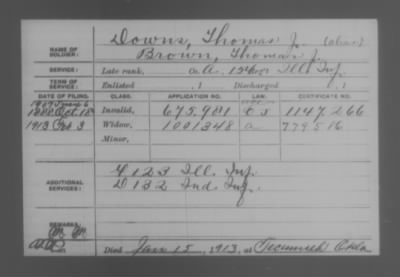 NAME OF SOLDIER: Downs, Thomas J. (alias)
Brown, Thomas J.
SERVICE: Late rank, Co. A, Ill Inf.
TERM OF SERVICE: Enlisted , 1 Discharged , 1
DATE OF FILING. CLASS. APPLICATION NO. LAW. CERTIFICATE NO.
1907
Invalid, 675,981 1147,266
1913 Widow, 1001348 a 779516
Minor,
ADDITIONAL SERVICES: 123 Ill. Inf.
D 132 Ind Inf.
REMARKS:
Died Jan 15, 1913, at Tecumseh Okla